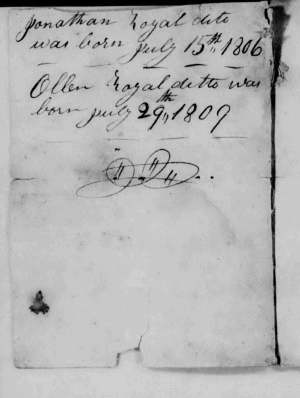 Jonathan Royal ditto
was born July 15th, 1806
Ollen Royal ditto was
born July 29th, 1809